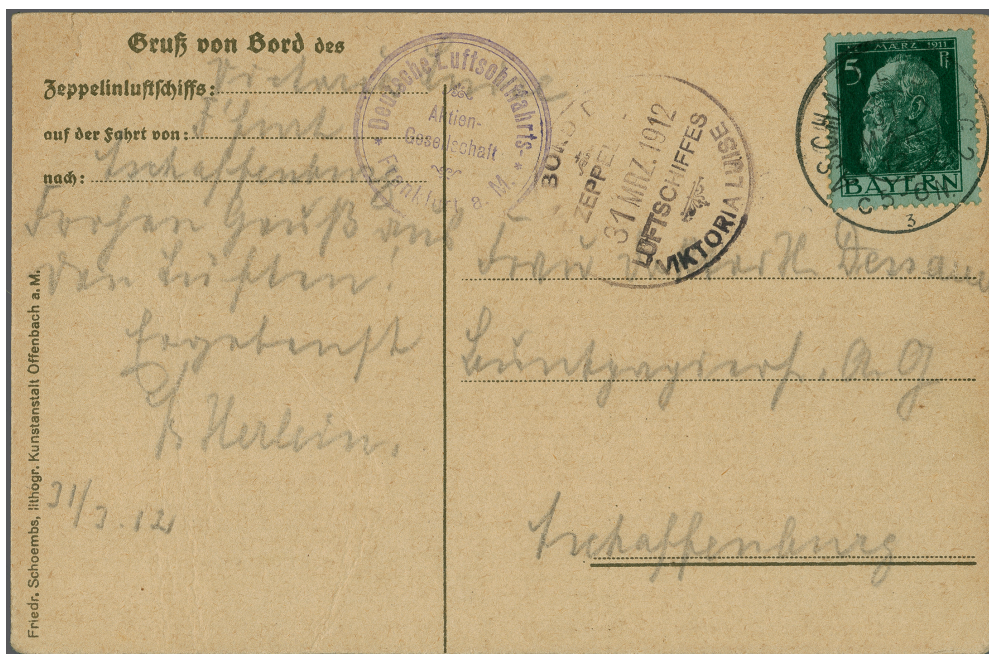 Gruß von Bord des
Zeppelinluftschiffs:
auf der Fahrt von:
nach: Aschaffenburg
Frohen Gruß aus
den Lüften!
Ergebenst
Herlein.
31/3. 12
Friedr. Schoembs, lithogr. Kunstanstalt Offenbach a. M.
Deutsche Luftschiffahrts-
Aktien-
Gesellschaft
Frankfurt a. M.
BORD
ZEPPEL
31 MRZ. 1912
LUFTSCHIFFES
VIKTORIA LUISE
5 Pf
MÄRZ 1911
BAYERN
3
Frau
Buntpapierf. A. G
Aschaffenburg